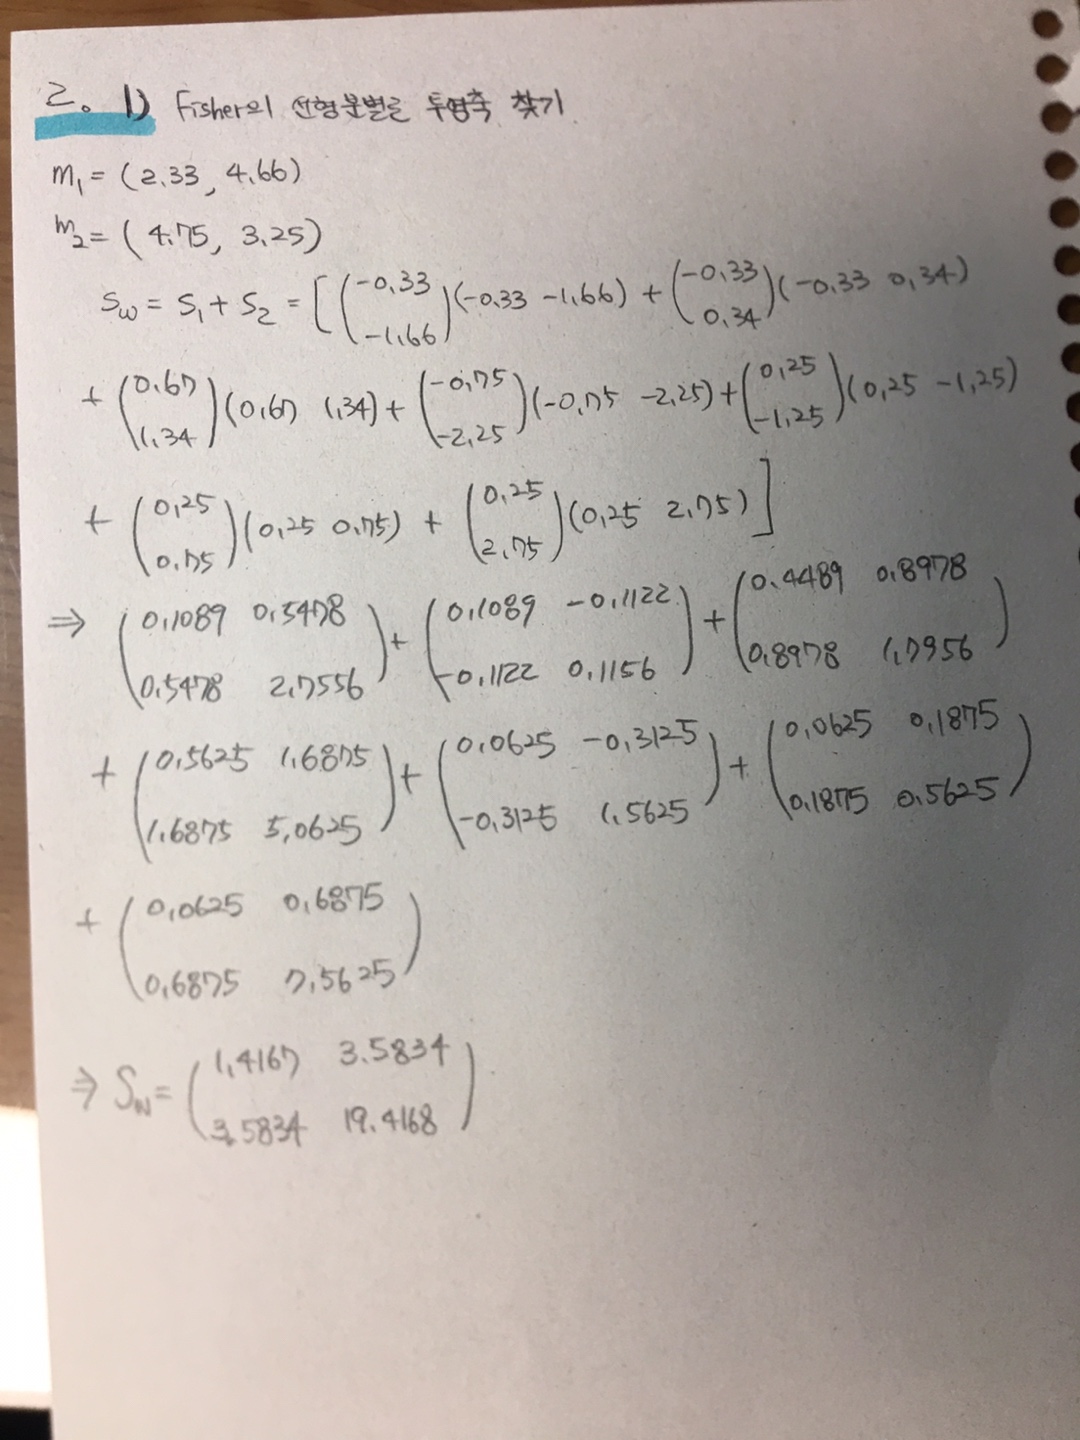 2. 1) Fisher의 선형분별로 투영축 찾기
m₁ = (2.33, 4.66)
m₂ = (4.75, 3.25)
S_w = S₁ + S₂ = [ (-0.33 / -1.66)(-0.33 -1.66) + (-0.33 / 0.34)(-0.33 0.34)
+ (0.67 / 1.34)(0.67 1.34) + (-0.75 / -2.25)(-0.75 -2.25) + (0.25 / -1.25)(0.25 -1.25)
+ (0.25 / 0.75)(0.25 0.75) + (0.25 / 2.75)(0.25 2.75) ]
⇒ (0.1089 0.5478 / 0.5478 2.7556) + (0.1089 -0.1122 / -0.1122 0.1156) + (0.4489 0.8978 / 0.8978 1.7956)
+ (0.5625 1.6875 / 1.6875 5.0625) + (0.0625 -0.3125 / -0.3125 1.5625) + (0.0625 0.1875 / 0.1875 0.5625)
+ (0.0625 0.6875 / 0.6875 7.5625)
⇒ S_w = (1.4167 3.5834 / 3.5834 19.4168)